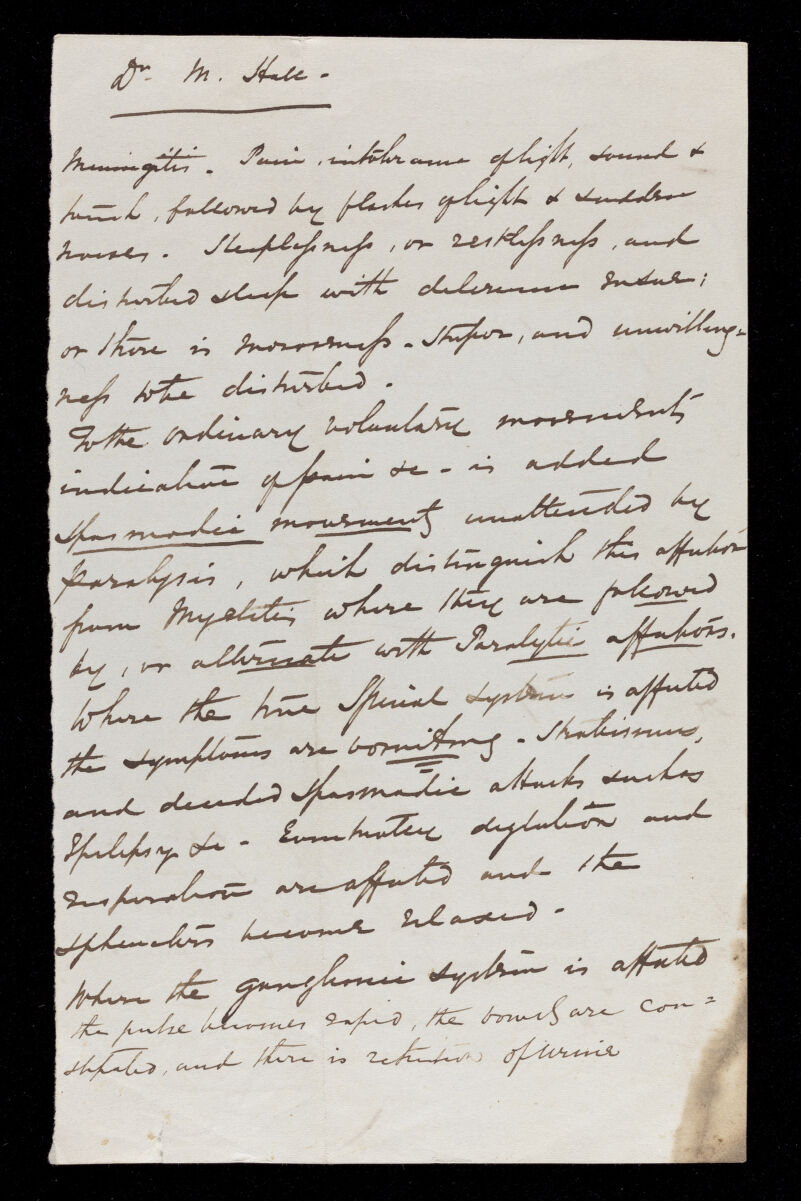 Dr. M. Hall -
Meningitis - Pain, intolerance of light, sound &
touch, followed by flashes of light & sudden
noises - Sleeplessness, or restlessness, and
disturbed sleep with delirium ensue;
or there is moroseness - stupor, and unwilling=
ness to be disturbed.
To the ordinary voluntary movements
indicative of pain &c - is added
spasmodic movements unattended by
Paralysis, which distinguish this affection
from Myelitis where they are followed
by, or alternate with Paralytic affections.
Where the true Spinal system is affected
the symptoms are vomiting - Strabismus,
and decided spasmodic attacks such as
Epilepsy &c - Eventually deglution and
respiration are affected and the
sphincters become relaxed -
Where the ganglionic system is affected
the pulse becomes rapid, the bowels are con=
stipated, and there is retention of urine